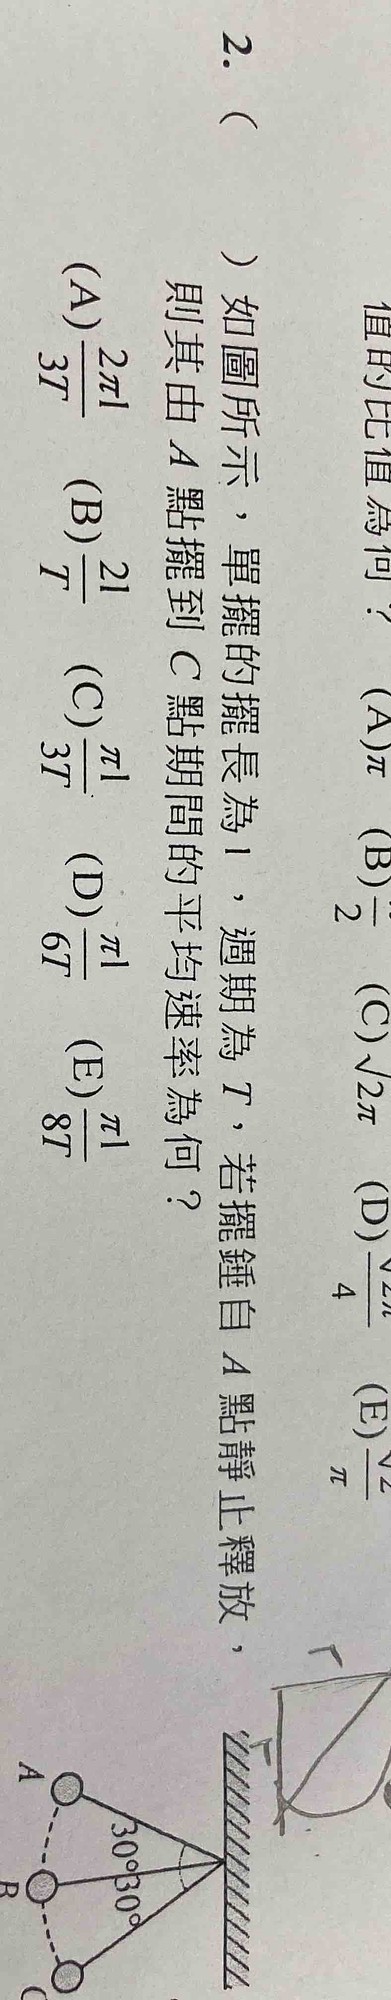 值的比值為何？ (A)π (B)—/2 (C)√2π (D)√2π/4 (E)√2/π
2. (　　) 如圖所示，單擺的擺長為l，週期為T，若擺錘自A點靜止釋放，
則其由A點擺到C點期間的平均速率為何？
(A)2πl/3T (B)2l/T (C)πl/3T (D)πl/6T (E)πl/8T
30°30°
A
B
r
r